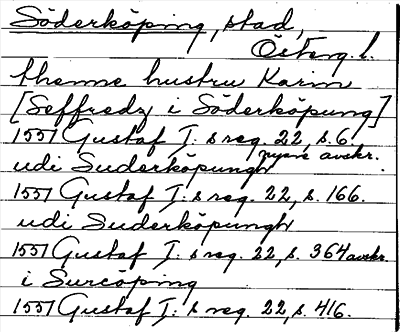 Söderköping, stad,
Österg. l.
thenne hustru Karin
[Seffredz i Söderköpung]
1557 Gustaf I:s reg. 22, s. 6,
nyare avskr.
udi Suderköpungh
1557 Gustaf I:s reg. 22, s. 166.
udi Suderköpungh
1557 Gustaf I:s reg. 22, s. 364 avskr.
i Surcöping
1557 Gustaf I:s reg. 22, s. 416.